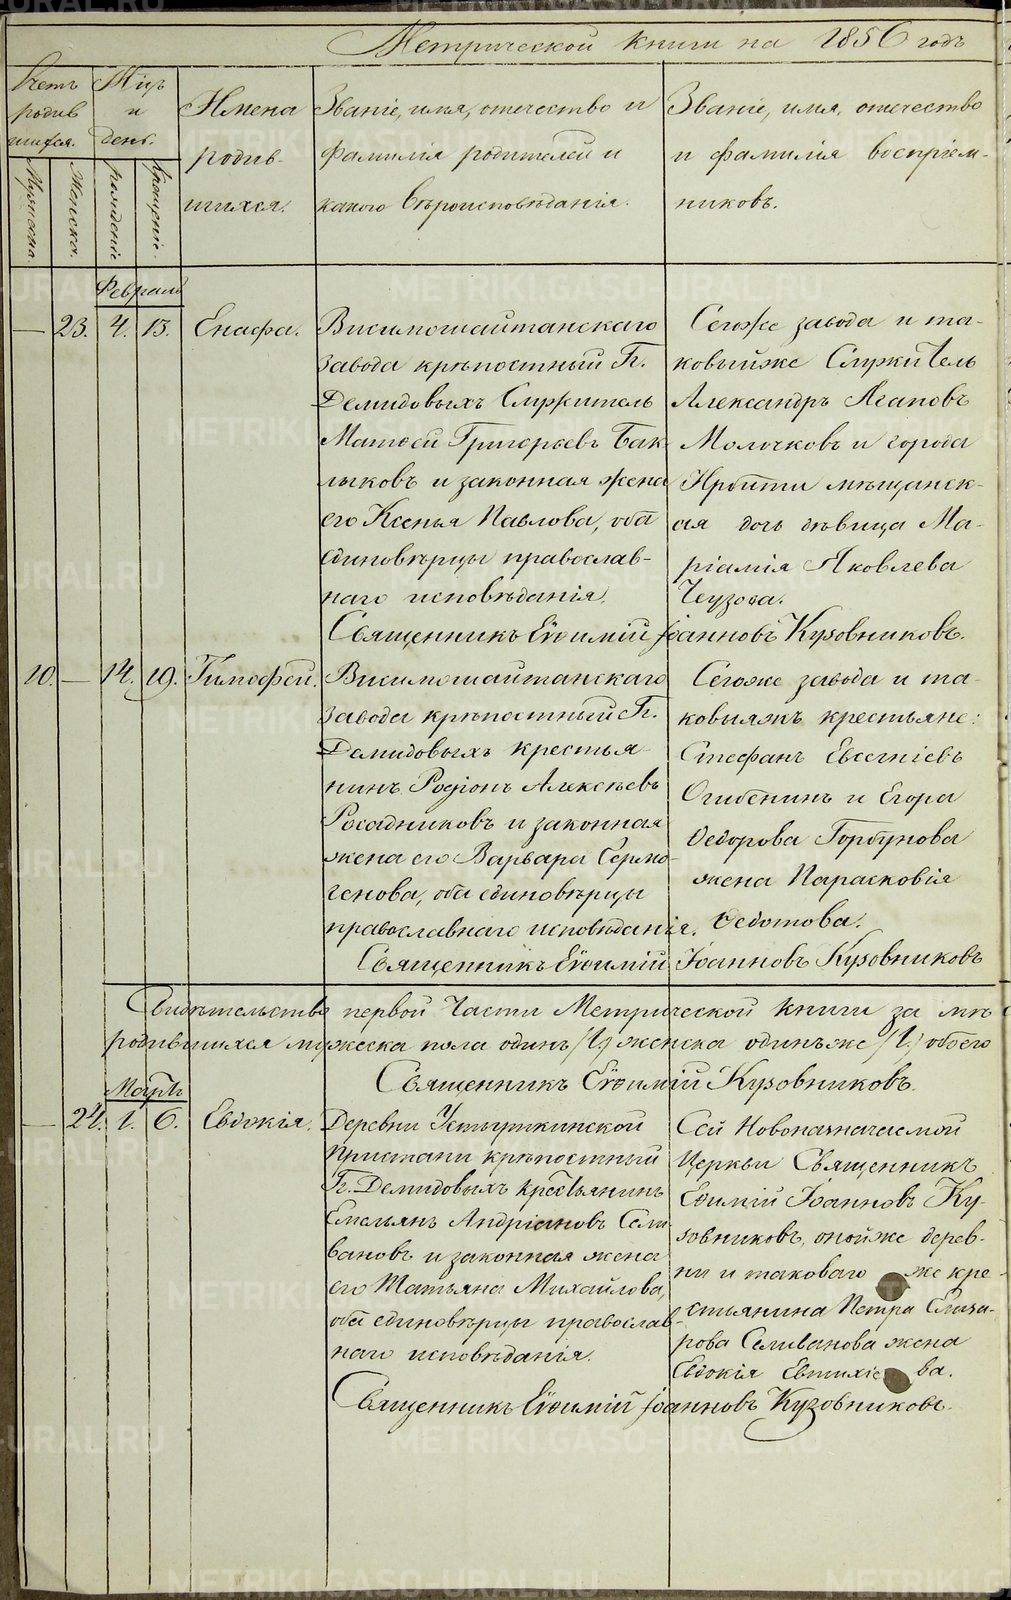 Метрической книги на 1856 годъ
Счетъ родив шихся.
Мужеска.
Женска.
Мѣць и день.
рожденіе
крещеніе.
Имена
родив-
шихся.
Званіе, имя, отечество и
фамилія родителей и
какого вѣроисповѣданія.
Званіе, имя, отечество
и фамилія воспріем-
никовъ.
Февраль
— 23. 4. 15. Енафа.
Висимошайтанскаго
завода крѣпостный Гг.
Демидовыхъ Служитель
Матѳей Григорьевъ Бак
лыковъ и законная жена
его Ксенья Павлова, оба
единовѣрцы православ-
наго исповѣданія.
Сегоже завода и та-
ковыйже Служитель
Александръ Агаповъ
Молочковъ и города
Ирбити мѣщанск-
ая дочь дѣвица Ма-
ріамія Яковлева
Чеузова.
Священникъ Евѳимій Іоанновъ Кузовниковъ.
10. — 14. 19. Тимофей.
Висимошайтанскаго
завода крѣпостный Гг.
Демидовыхъ крестья
нинъ Родіонъ Алексѣевъ
Росадниковъ и законная
жена его Варвара Сермо-
генова, оба единовѣрцы
православнаго исповѣданія.
Сегоже завода и та-
ковыяжъ крестьяне:
Стефанъ Евсегніевъ
Огибенинъ и Егора
Ѳедорова Горбунова
жена Парасковія
Ѳедотова.
Священникъ Евѳимій Іоанновъ Кузовниковъ
Свидѣтельство первой Части Метрической книги за
родившихся мужеска пола одинъ /1,/ женска одинъже /1,/ обоего
Священникъ Евѳимій Кузовниковъ.
Мартъ
— 24. 1. 6. Евдокія.
Деревни Усть
Пристани крѣпостный
Гг. Демидовыхъ крестьянинъ
Емельянъ Андріановъ Сели-
вановъ и законная жена
его Татьяна Михайлова,
оба единовѣрцы православ-
наго исповѣданія.
Сей Новоназначаемой
Церкви Священникъ
Евѳимій Іоанновъ Ку-
зовниковъ, онойже дерев-
ни и таковаго же кре-
стьянина Петра Елиза-
рова Селиванова жена
Евдокія ва.
Священникъ Евѳимій Іоанновъ Кузовниковъ.
METRIKI.GASO-URAL.RU